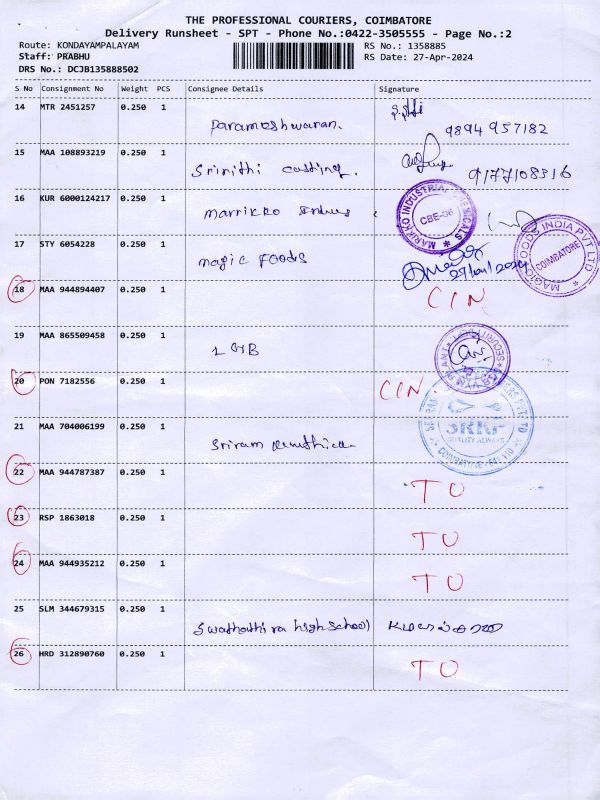 THE PROFESSIONAL COURIERS, COIMBATORE
Delivery Runsheet - SPT - Phone No.:0422-3505555 - Page No.:2
Route: KONDAYAMPALAYAM RS No.: 1358885
Staff: PRABHU RS Date: 27-Apr-2024
DRS No.: DCJB135888502
S No Consignment No Weight PCS Consignee Details Signature
14 MTR 2451257 0.250 1 Parameshwaran. 9894 957182
15 MAA 108893219 0.250 1 Srinithi casting. 9177108316
16 KUR 6000124217 0.250 1 Marrikko MARIKKO INDUSTRIAL CHEMICALS CBE-06
17 STY 6054228 0.250 1 Magic Foods MAGIC FOODS INDIA PVT LTD COIMBATORE
18 MAA 944894407 0.250 1 CIN
19 MAA 865509458 0.250 1 LGB
20 PON 7182556 0.250 1 CIN.
21 MAA 704006199 0.250 1 Sriram SRKP QUALITY ALWAYS
22 MAA 944787387 0.250 1 TO
23 RSP 1863018 0.250 1 TO
24 MAA 944935212 0.250 1 TO
25 SLM 344679315 0.250 1 high school
26 HRD 312890760 0.250 1 TO